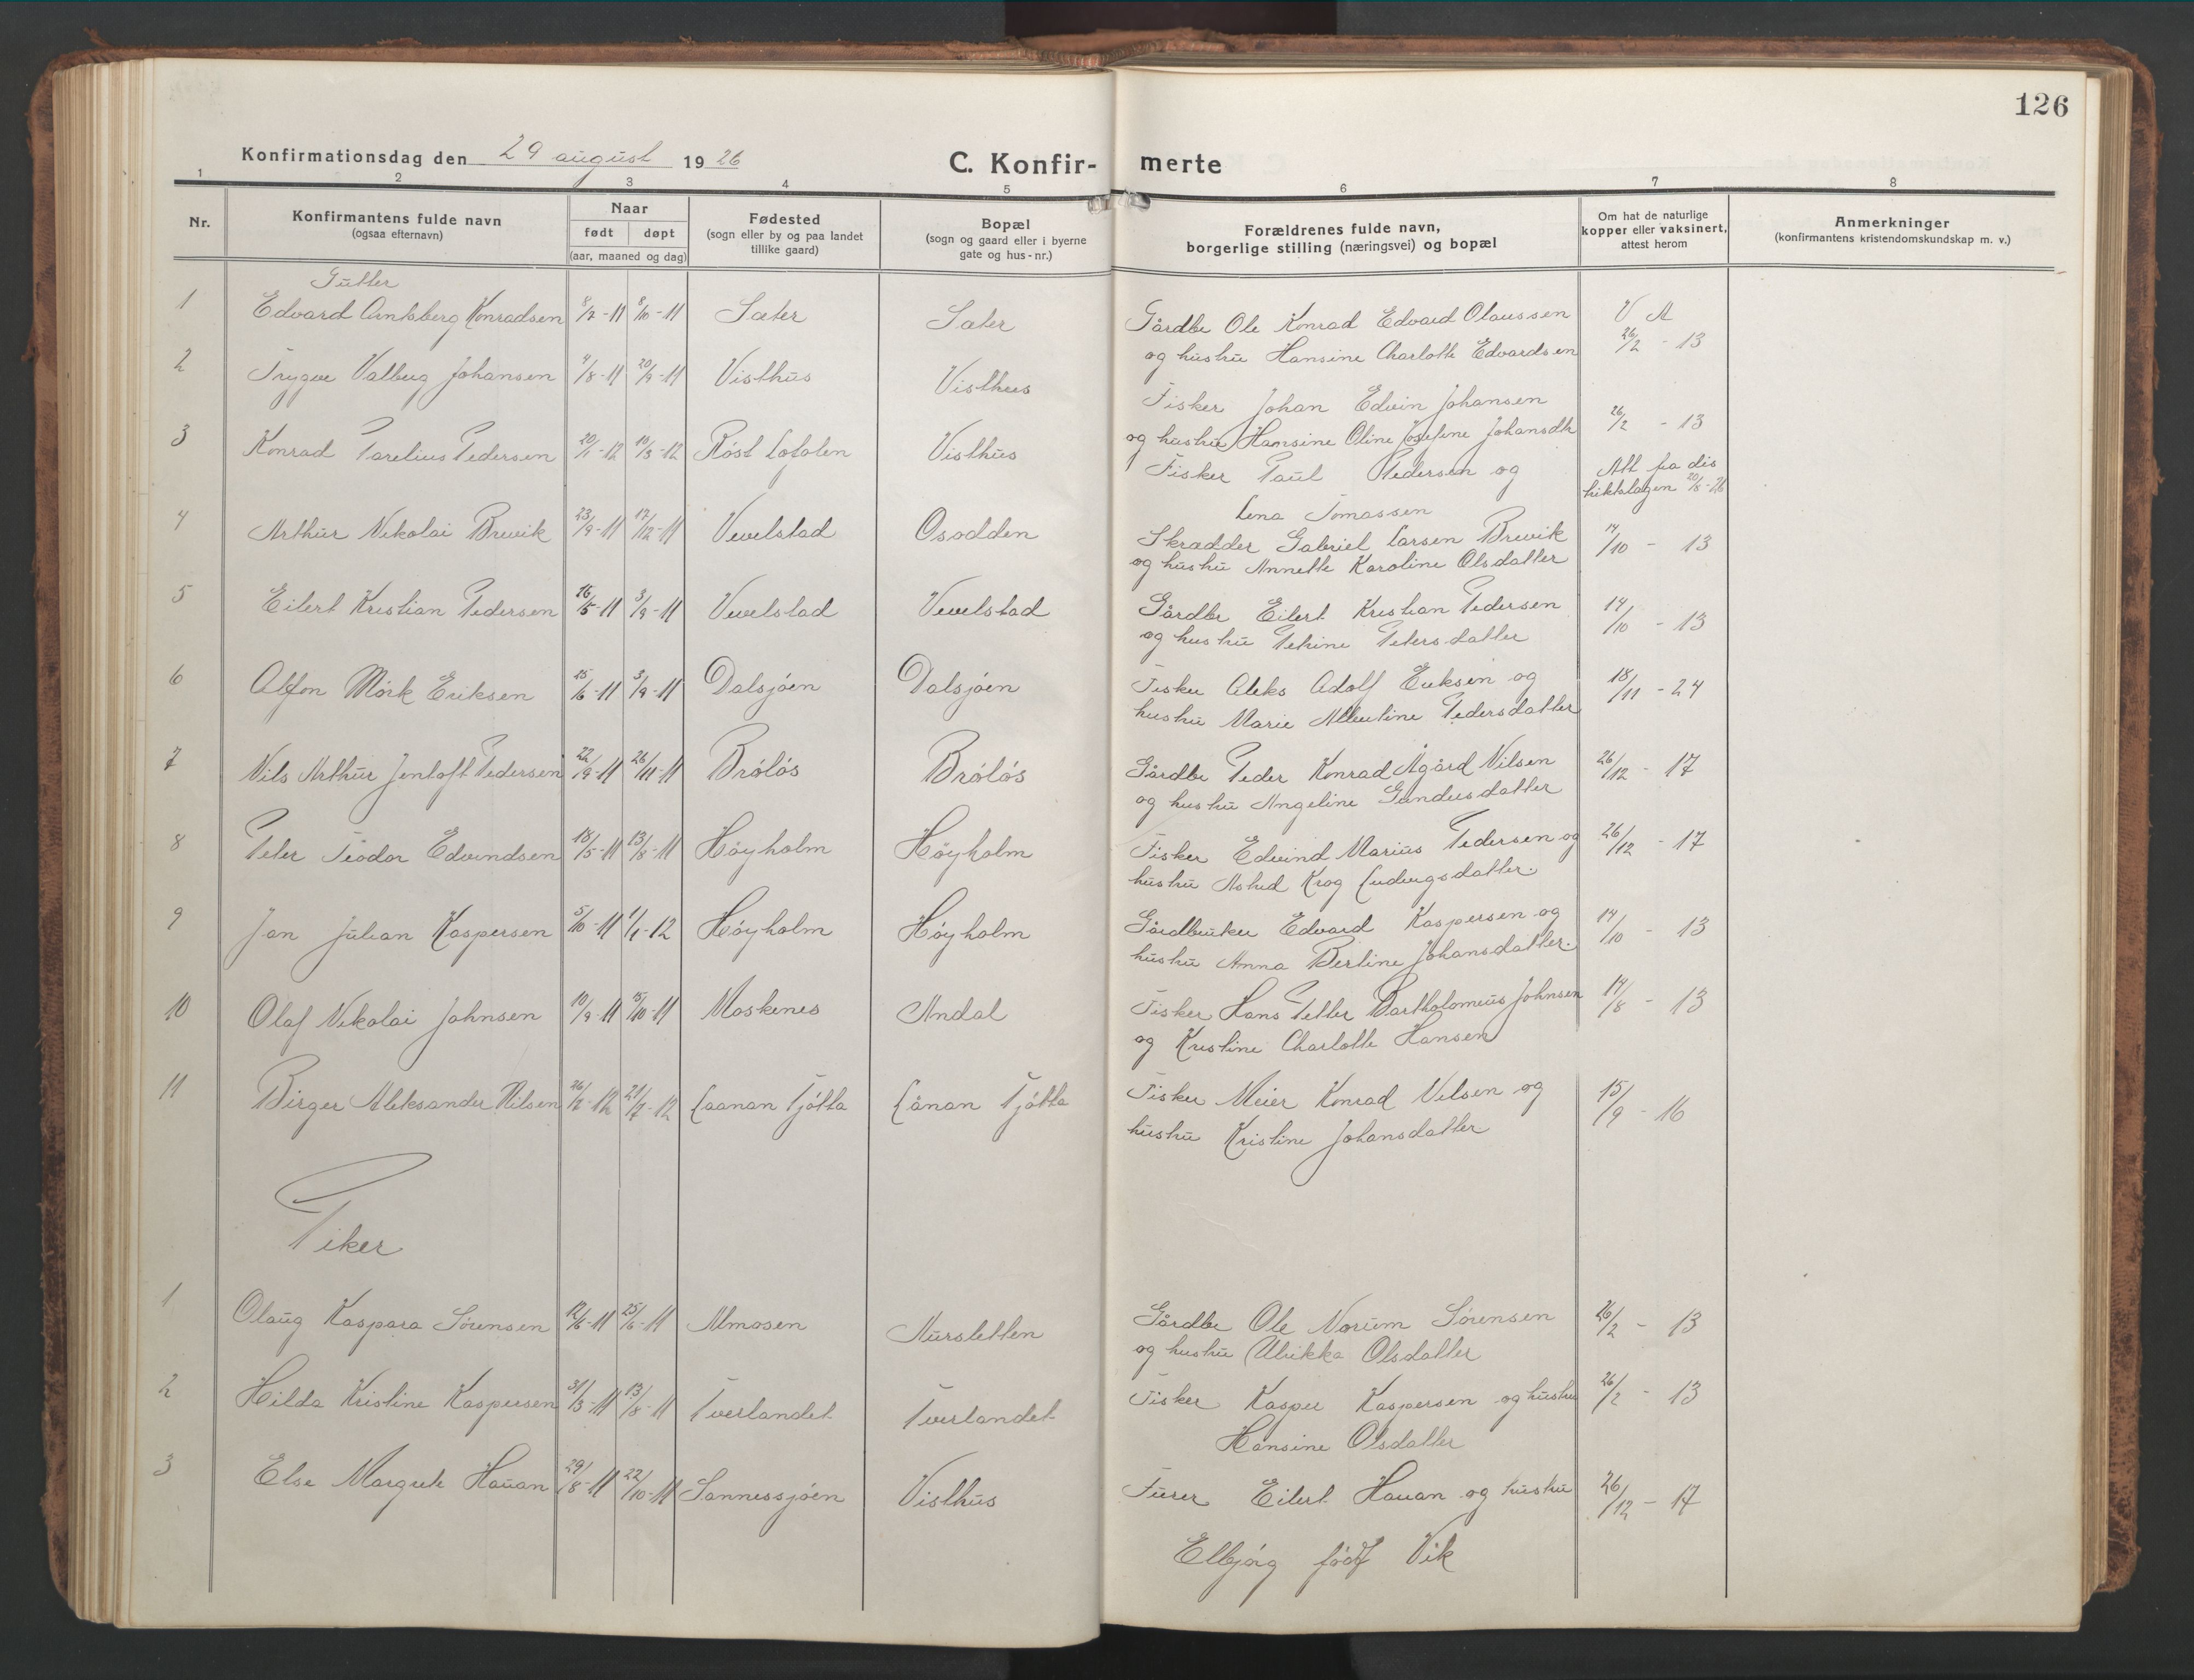 126
Konfirmationsdag den 29 august 1926
C. Konfir- merte
1 2 3 4 5 6 7 8
Nr.
Konfirmantens fulde navn
(ogsaa efternavn)
Naar
født døpt
(aar, maaned og dag)
Fødested
(sogn eller by og paa landet
tillike gaard)
Bopæl
(sogn og gaard eller i byerne
gate og hus-nr.)
Forældrenes fulde navn,
borgerlige stilling (næringsvei) og bopæl
Om hat de naturlige
kopper eller vaksinert,
attest herom
Anmerkninger
(konfirmantens kristendomskundskap m. v.)
Gutter
1 Edvard Arntsberg Konradsen 8/7-11 8/10-11 Sæter Sæter Gårdbr Ole Konrad Edvard Olaussen V A
og hustru Hansine Charlotte Edvardsen 26/2 - 13
2 Trygve Valberg Johansen 4/8-11 20/9-11 Visthus Visthus Fisker Johan Edvin Johansen
og hustru Hansine Oline Josefine Johansdtr 26/2 - 13
3 Konrad Parelius Pedersen 20/1-12 10/3-12 Røst Lofoten Visthus Fisker Paul Pedersen og Att fra dis
Lena Tomassen triktslægen 20/8-26
4 Arthur Nikolai Brevik 23/9-11 17/12-11 Vevelstad Osodden Skrædder Gabriel Larsen Brevik 14/10 - 13
og hustru Annette Karoline Olsdatter
5 Eilert Kristian Pedersen 16/5-11 3/9-11 Vevelstad Vevelstad Gårdbr Eilert Kristian Pedersen 14/10 - 13
og hustru Petrine Petersdatter
6 Alfon Mørk Eriksen 15/6-11 3/9-11 Dalsjøen Dalsjøen Fisker Aleks Adolf Eriksen og 18/11 - 24
hustru Marie Albertine Pedersdatter
7 Nils Arthur Jentoft Pedersen 22/9-11 26/11-11 Brøløs Brøløs Gårdbr Peder Konrad Ågård Nilsen 26/12 - 17
og hustru Angeline Gundersdatter
8 Peter Teodor Edvindsen 18/5-11 13/8-11 Høyholm Høyholm Fisker Edvind Marius Pedersen og 26/12 - 17
hustru Astrid Krog Ludvigsdatter.
9 Jan Julian Kaspersen 5/10-11 1/1-12 Høyholm Høyholm Gårdbruker Edvard Kaspersen og 14/10 - 13
hustru Anna Bertine Johansdatter.
10 Olaf Nikolai Johnsen 10/9-11 15/10-11 Moskenes Andal Fisker Hans Petter Bartholomeus Johnsen 14/8 - 13
og Kristine Charlotte Hansen
11 Birger Aleksander Nilsen 26/2-12 21/7-12 Laanan Tjøtta Lånan Tjøtta Fisker Meier Konrad Nilsen og 15/9 - 16
hustru Kristine Johansdatter
Piker
1 Olaug Kaspara Sørensen 12/6-11 25/6-11 Almosen Aursletten Gårdbr Ole Norum Sørensen 26/2 - 13
og hustru Ulrikka Olsdatter
2 Hilda Kristine Kaspersen 31/3-11 13/8-11 Tverlandet Tverlandet Fisker Kasper Kaspersen og hustru 26/2 - 13
Hansine Olsdatter
3 Else Margrete Hauan 29/8-11 22/10-11 Sannessjøen Visthus Furer Eilert Hauan og hustru 26/12 - 17
Elbjørg født Vik